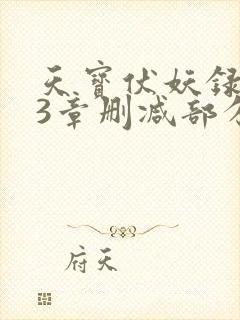 天宝伏妖录
3章删减部分
府天